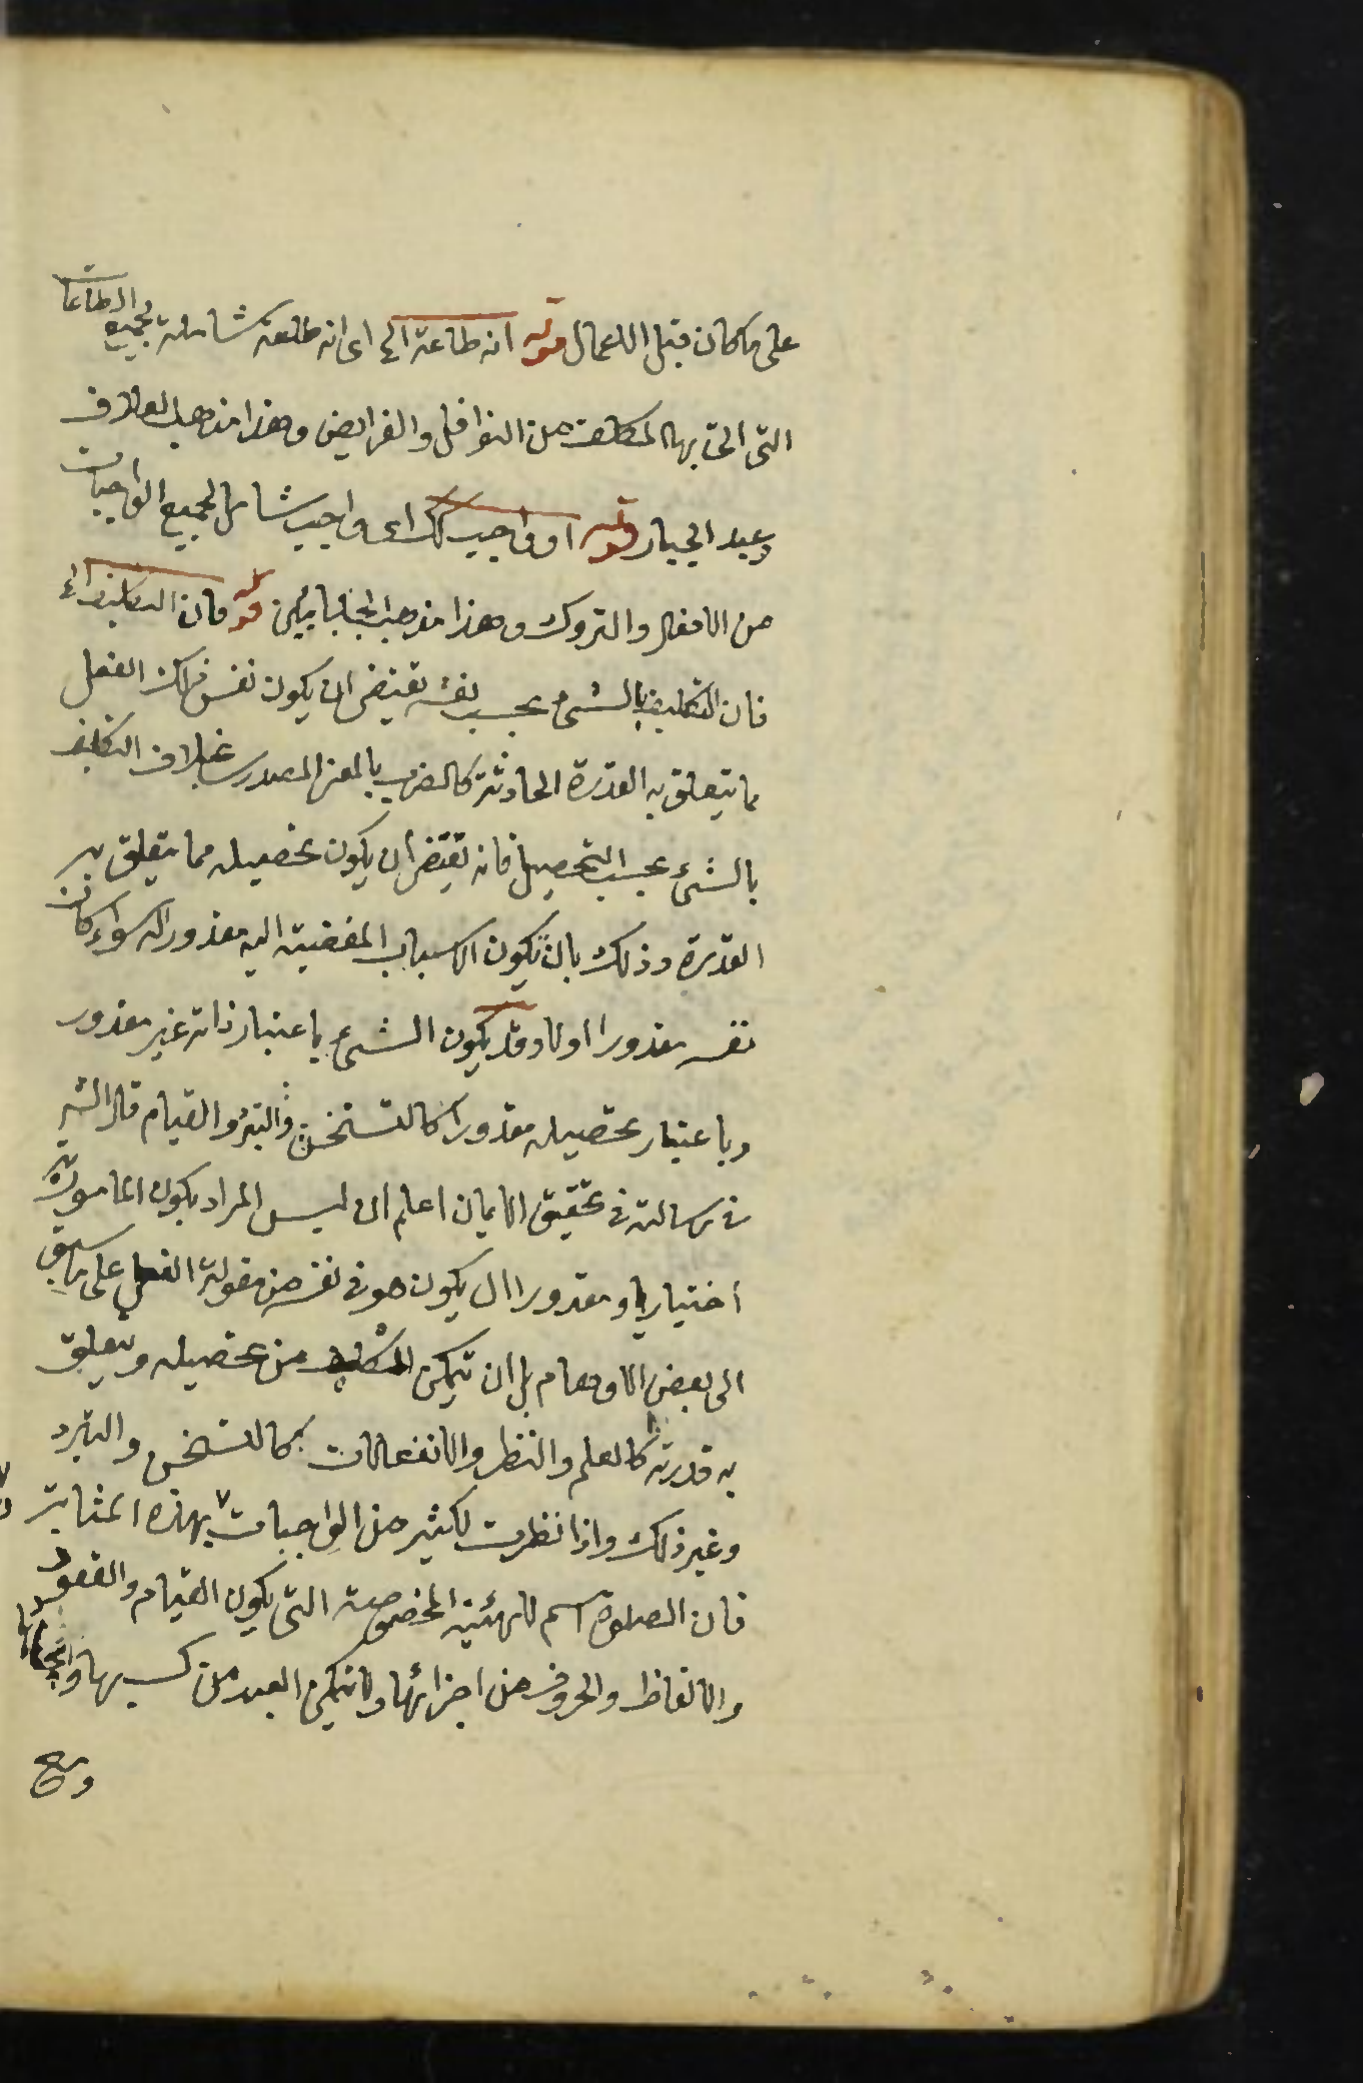 على ما كان قبل الاعمال قوله انه طاعة الخ اى انه طاعة شاملة لجميع الطاعات
التى اتى بها المكلف من النوافل والفرايض وهذا مذهب العلاف
وعبد الجبار قوله او واجب كك اى واجب شامل لجميع الواجبات
من الافعال والتروك وهذا مذهب الجبايين قوله فان التكليف الخ
فان التكليف بالشئ بحسب نفسه يقتضى ان يكون نفس ذلك الفعل
مما يتعلق به القدرة الحادثة كالضرب بالمعنى المصدرى بخلاف التكليف
بالشئ بحسب التحصيل فانه يقتضى ان يكون تحصيله مما يتعلق به
القدرة وذلك بان يكون الاسباب المفضية اليه مقدورا له سواء كان
نفسه مقدورا اولا وقد يكون الشئ باعتبار ذاته غير مقدور
وباعتبار تحصيله مقدورا كالتسخن والتبرد والقيام قال الش
فى رسالته فى تحقيق الايمان اعلم ان ليس المراد بكون المامور به
اختياريا ومقدورا ان يكون هو فى نفسه من مقولة الفعل على ما سبق
الى بعض الاوهام بل ان يتمكن المكلف من تحصيله ويتعلق
به قدرته كالعلم والنظر والانفعالات كالتسخن والتبرد
وغير ذلك واذا نظرت لكثير من الواجبات بهذه المثابة
فان الصلوة اسم للهيئة المخصوصة التى يكون القيام والقعود
والالفاظ والحروف من اجزائها ولا يتمكن العبد من كسبها وايجادها
ومع